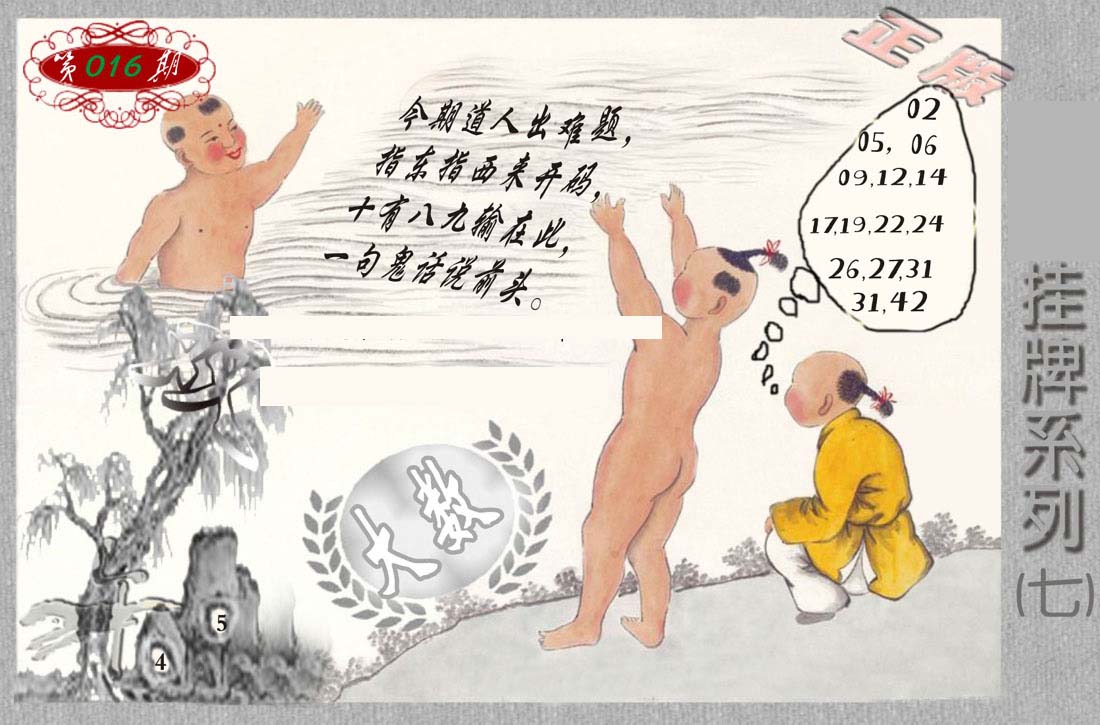 第016期
正版
今期道人出难题,
指东指西来开码,
十有八九输在此,
一句鬼话说前头。
02
05, 06
09,12,14
17,19,22,24
26,27,31
31,42
挂牌系列(七)
大数
5
4